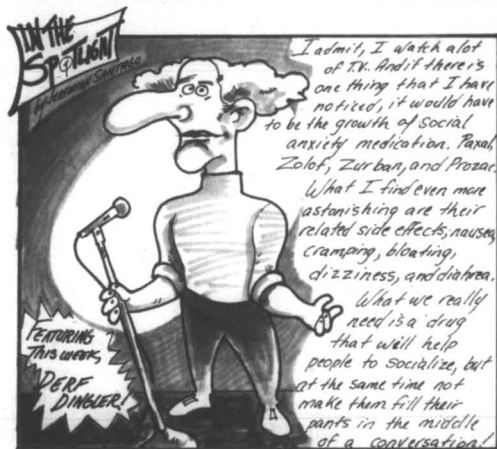 IN THE
SPOTLIGHT
by JEREMY SANTIAGO
I admit, I watch alot
of T.V. And if there is
one thing that I have
noticed, it would have
to be the growth of social
anxiety medication. Paxal,
Zolof, Zurban, and Prozac.
What I find even more
astonishing are their
related side effects; nausea,
cramping, bloating,
dizziness, and diahrea.
What we really
need is a drug
that will help
people to socialize, but
at the same time not
make them fill their
pants in the middle
of a conversation!
FEATURING
THIS WEEKS,
DERF
DINGLER!